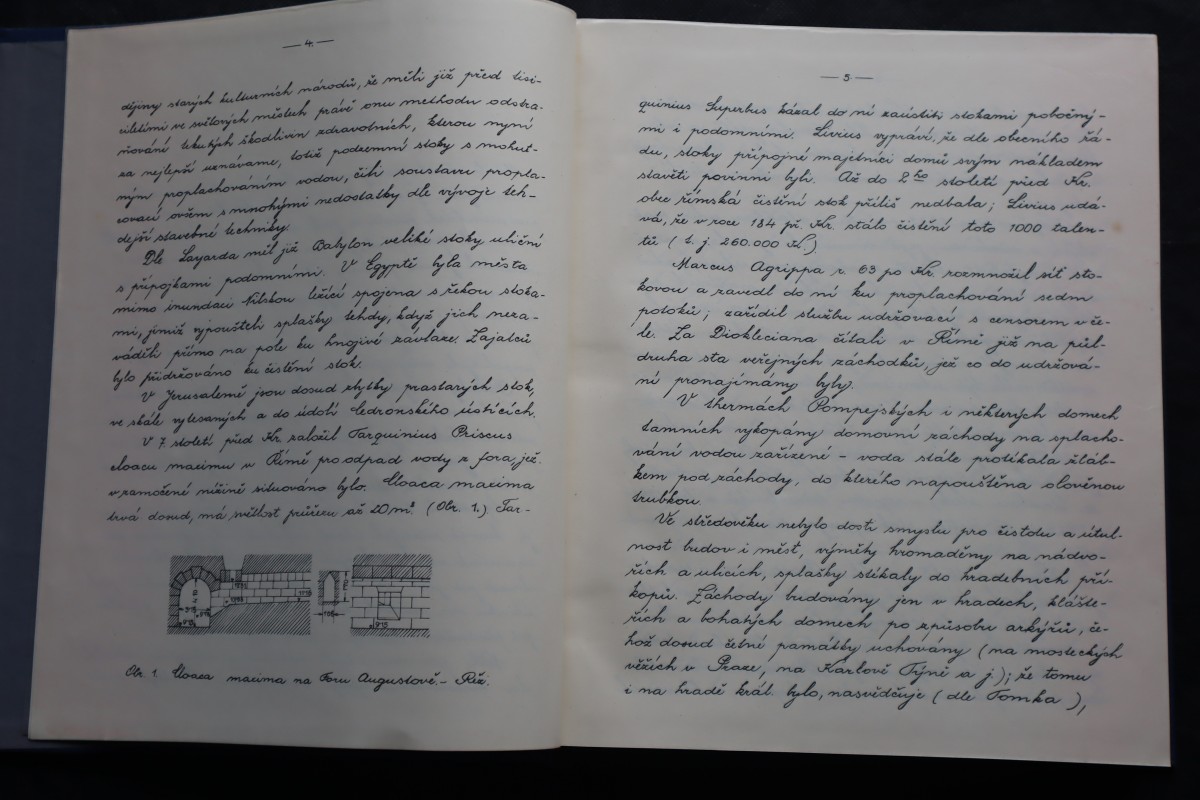 — 4. —
dějiny starých kulturních národů, že měli již před tisí-
ciletími ve světových městech právě onu methodu odstra-
ňování tekutých škodlivin zdravotních, kterou nyní
za nejlepší uznáváme, totiž podzemní stoky s mohut-
ným proplachováním vodou, čili soustavu propla-
covací ovšem s mnohými nedostatky dle vývoje teh-
dejší stavebné techniky.
Dle Layarda měl již Babylon veliké stoky uliční
s přípojkami podomními. V Egyptě byla města
mimo inundaci Nilskou ležící spojena s řekou stoka-
mi, jimiž vypouštěli splašky tehdy, když jich neza-
váděli přímo na pole ku hnojivé závlaze. Zajatců
bylo přidržováno ku čistění stok.
V Jerusalemě jsou dosud zbytky prastarých stok,
ve skále vytesaných a do údolí Cedronského ústících.
V 7. století před Kr. založil Tarquinius Priscus
cloacu maximu v Římě pro odpad vody z fora, jež
v zamočené nížině situováno bylo. Cloaca maxima
trvá dosud, má světlost průřezu až 20 m². (Obr. 1.) Tar-
Obr. 1. Cloaca maxima na Foru Augustově.- Řěz.
— 5 —
quinius Superbus kázal do ní zaústiti stokami pobočný-
mi i podomními. Livius vypráví, že dle obecního řá-
du, stoky přípojné majetníci domů svým nákladem
stavěti povinni byli. Až do 2ho století před Kr.
obec římská čistění stok příliš nedbala; Livius udá-
vá, že v roce 184 př. Kr. stálo čistění toto 1000 talen-
tů (t. j. 260.000 K.)
Marcus Agrippa r. 63 po Kr. rozmnožil síť sto-
kovou a zavedl do ní ku proplachování sedm
potoků; zařídil službu udržovací s censorem v če-
le. Za Diokleciana čítali v Římě již na půl-
druha sta veřejných záchodků, jež co do udržová-
ní pronajímány byly.
V thermách Pompejských i některých domech
tamních vykopány domovní záchody na splacho-
vání vodou zařízené - voda stále protékala žláb-
kem pod záchody, do kterého napouštěna olověnou
trubkou.
Ve středověku nebylo dosti smyslu pro čistotu a útul-
nost budov i měst, výměty hromaděny na nádvo-
řích a ulicích, splašky stékaly do hradebních pří-
kopů. Záchody budovány jen v hradech, klášte-
řích a bohatých domech po způsobu arkýřů, če-
hož dosud četné památky uchovány (na mosteckých
věžích v Praze, na Karlově Týně a j.); že tomu
i na hradě král. bylo, nasvědčuje (dle Tomka),